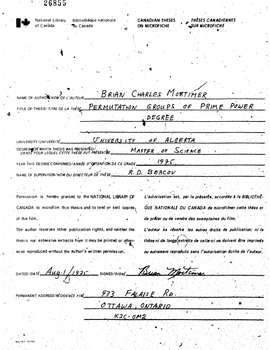 26855
National Library of Canada
Bibliothèque nationale du Canada
CANADIAN THESES ON MICROFICHE
THÈSES CANADIENNES SUR MICROFICHE
NAME OF AUTHOR/NOM DE L'AUTEUR BRIAN CHARLES MORTIMER
TITLE OF THESIS/TITRE DE LA THÈSE PERMUTATION GROUPS OF PRIME POWER
DEGREE
UNIVERSITY/UNIVERSITÉ UNIVERSITY OF ALBERTA
DEGREE FOR WHICH THESIS WAS PRESENTED/
GRADE POUR LEQUEL CETTE THÈSE FUT PRÉSENTÉE MASTER OF SCIENCE
YEAR THIS DEGREE CONFERRED/ANNÉE D'OBTENTION DE CE GRADE 1975
NAME OF SUPERVISOR/NOM DU DIRECTEUR DE THÈSE R.D. BERCOV
Permission is hereby granted to the NATIONAL LIBRARY OF
CANADA to microfilm this thesis and to lend or sell copies
of the film.
The author reserves other publication rights, and neither the
thesis nor extensive extracts from it may be printed or other-
wise reproduced without the author's written permission.
L'autorisation est, par la présente, accordée à la BIBLIOTHÈ-
QUE NATIONALE DU CANADA de microfilmer cette thèse et
de prêter ou de vendre des exemplaires du film.
L'auteur se réserve les autres droits de publication; ni la
thèse ni de longs extraits de celle-ci ne doivent être imprimés
ou autrement reproduits sans l'autorisation écrite de l'auteur.
DATED/DATÉ Aug 1/75 SIGNED/SIGNÉ Brian Mortimer
PERMANENT ADDRESS/RÉSIDENCE FIXE 973 FALAISE RD.
OTTAWA, ONTARIO
K2C-0M2